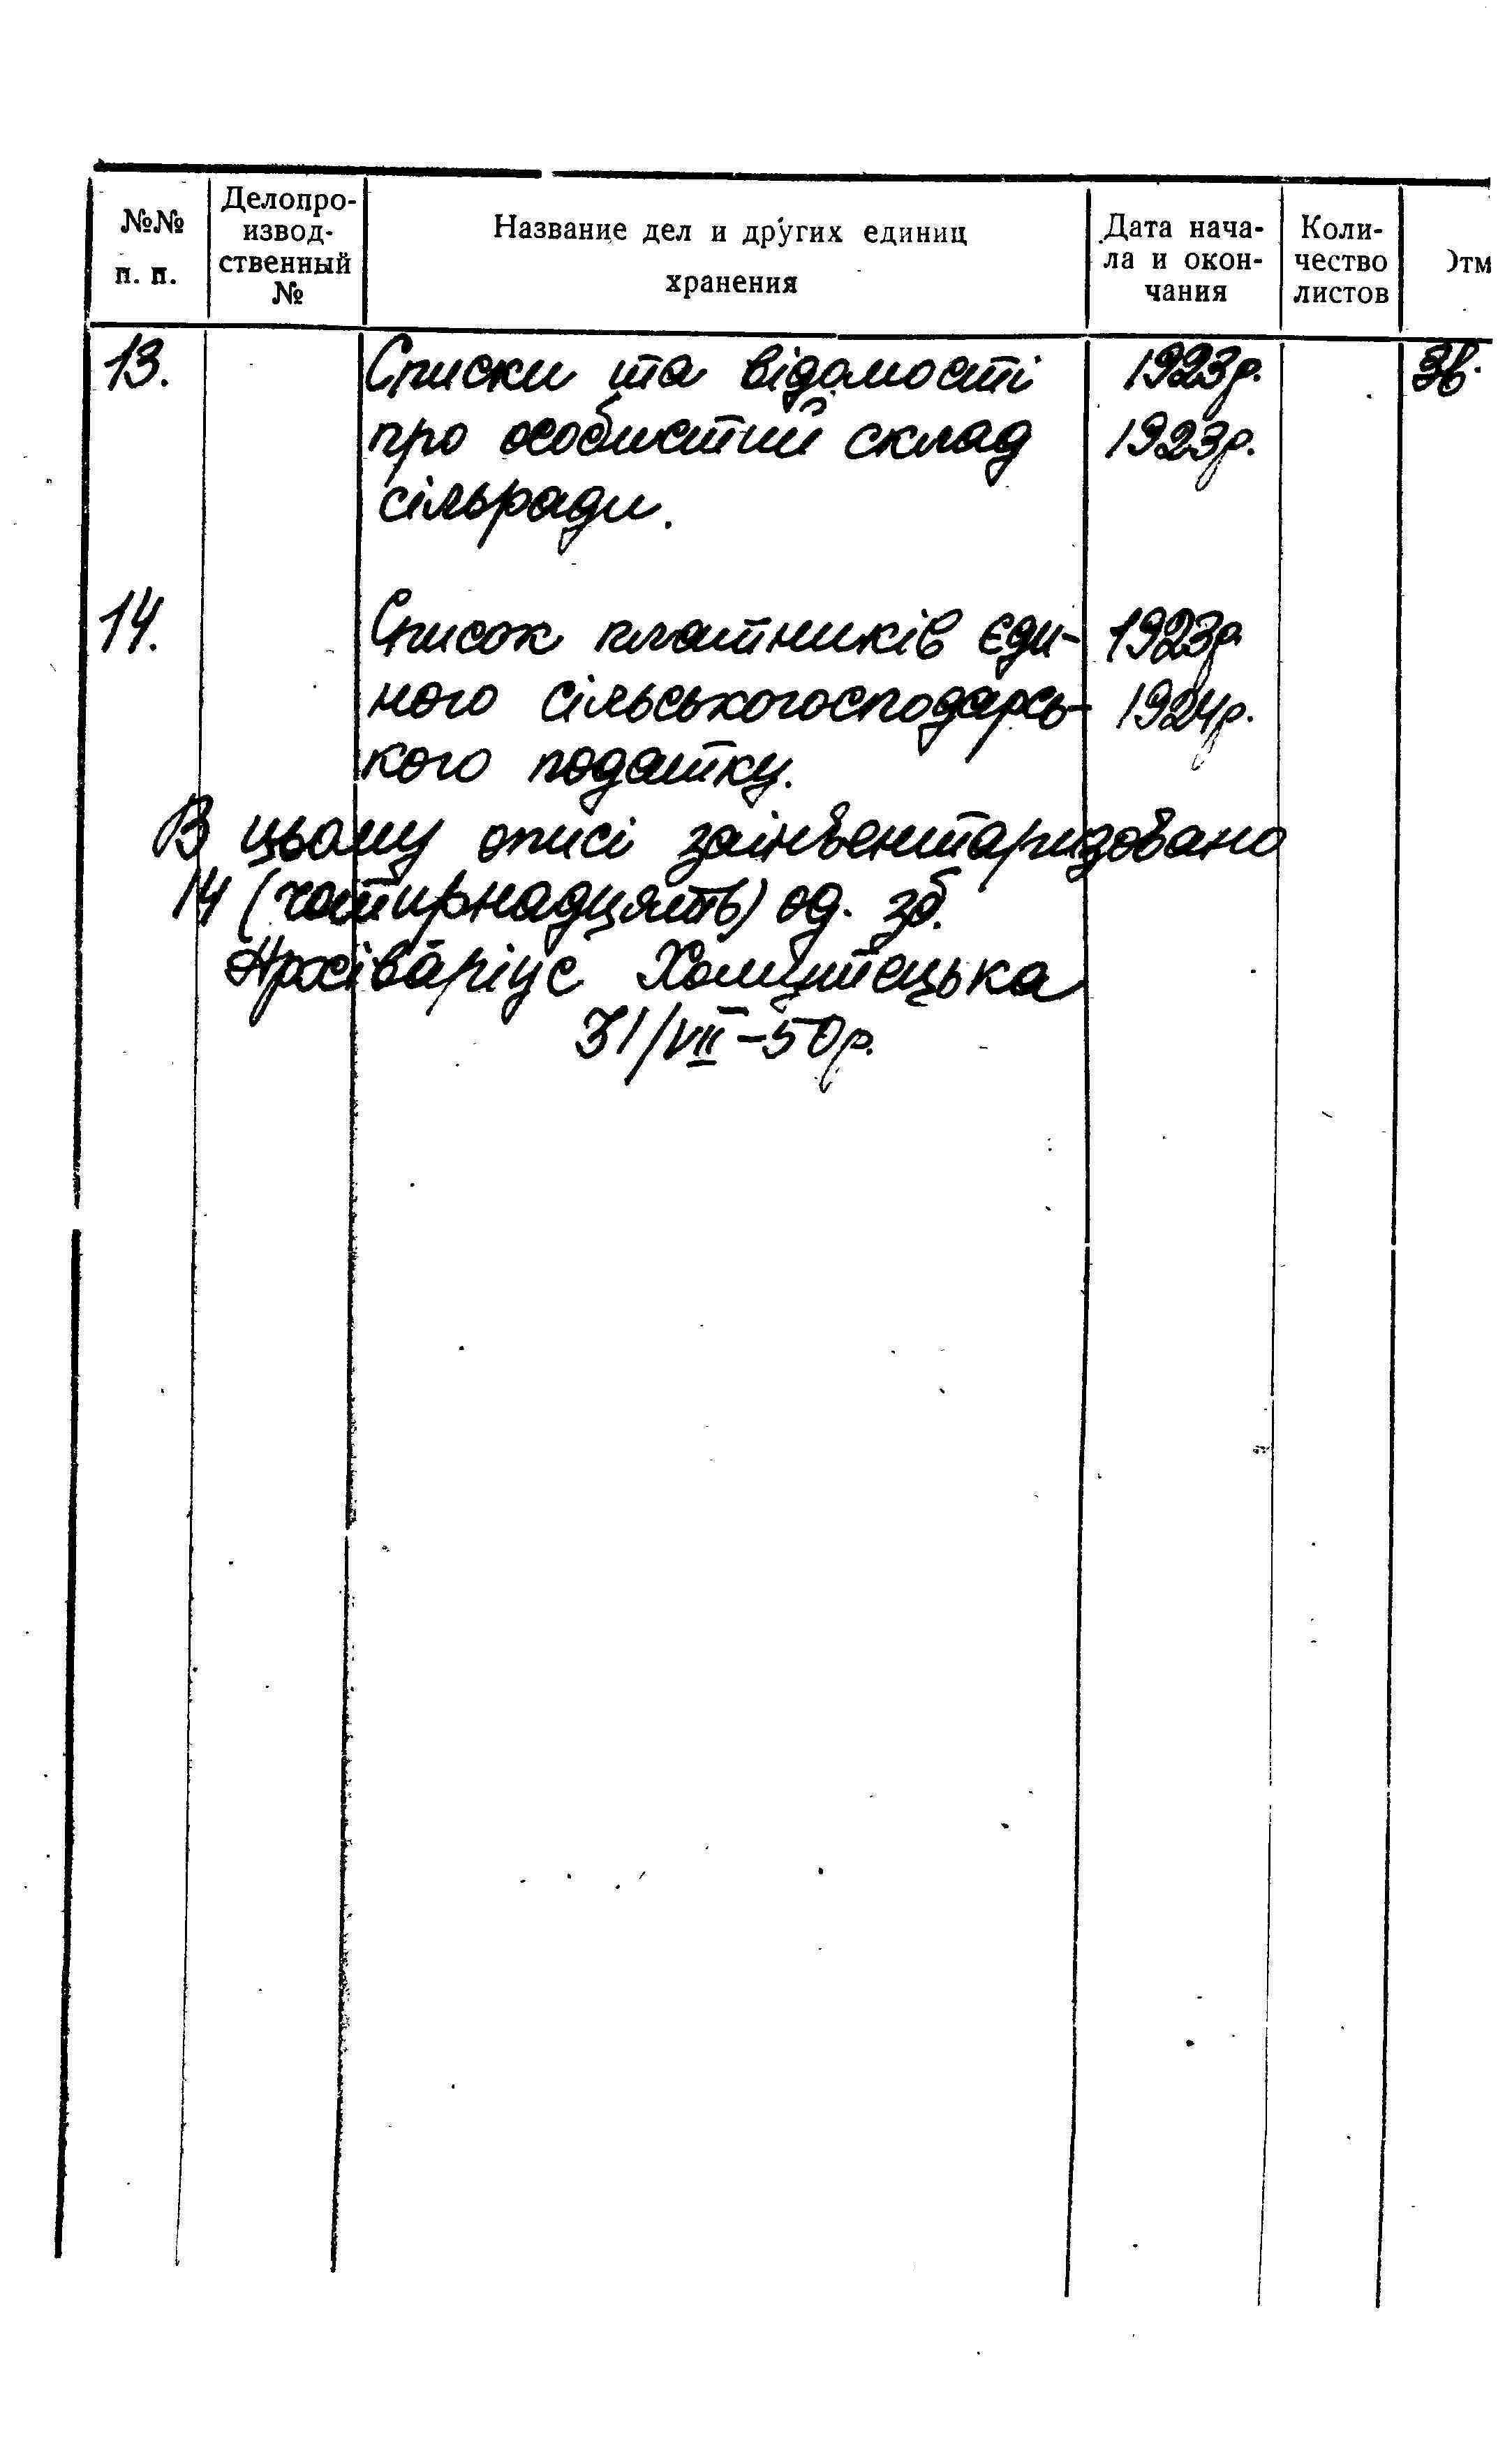 №№ п. п.
Делопро-
извод-
ственный
№
Название дел и других единиц
хранения
Дата нача-
ла и окон-
чания
Коли-
чество
листов
Отм
13.
Списки та відомості
про особистий склад
сільради.
1923р.
1923р.
Зв.
14.
Список платників єди-
ного сільськогосподарсь-
кого податку.
1923р.
1924р.
В цьому описі заінвентаризовано
14 (чотирнадцять) од. зб.
Архіваріус
31/VII-50р.